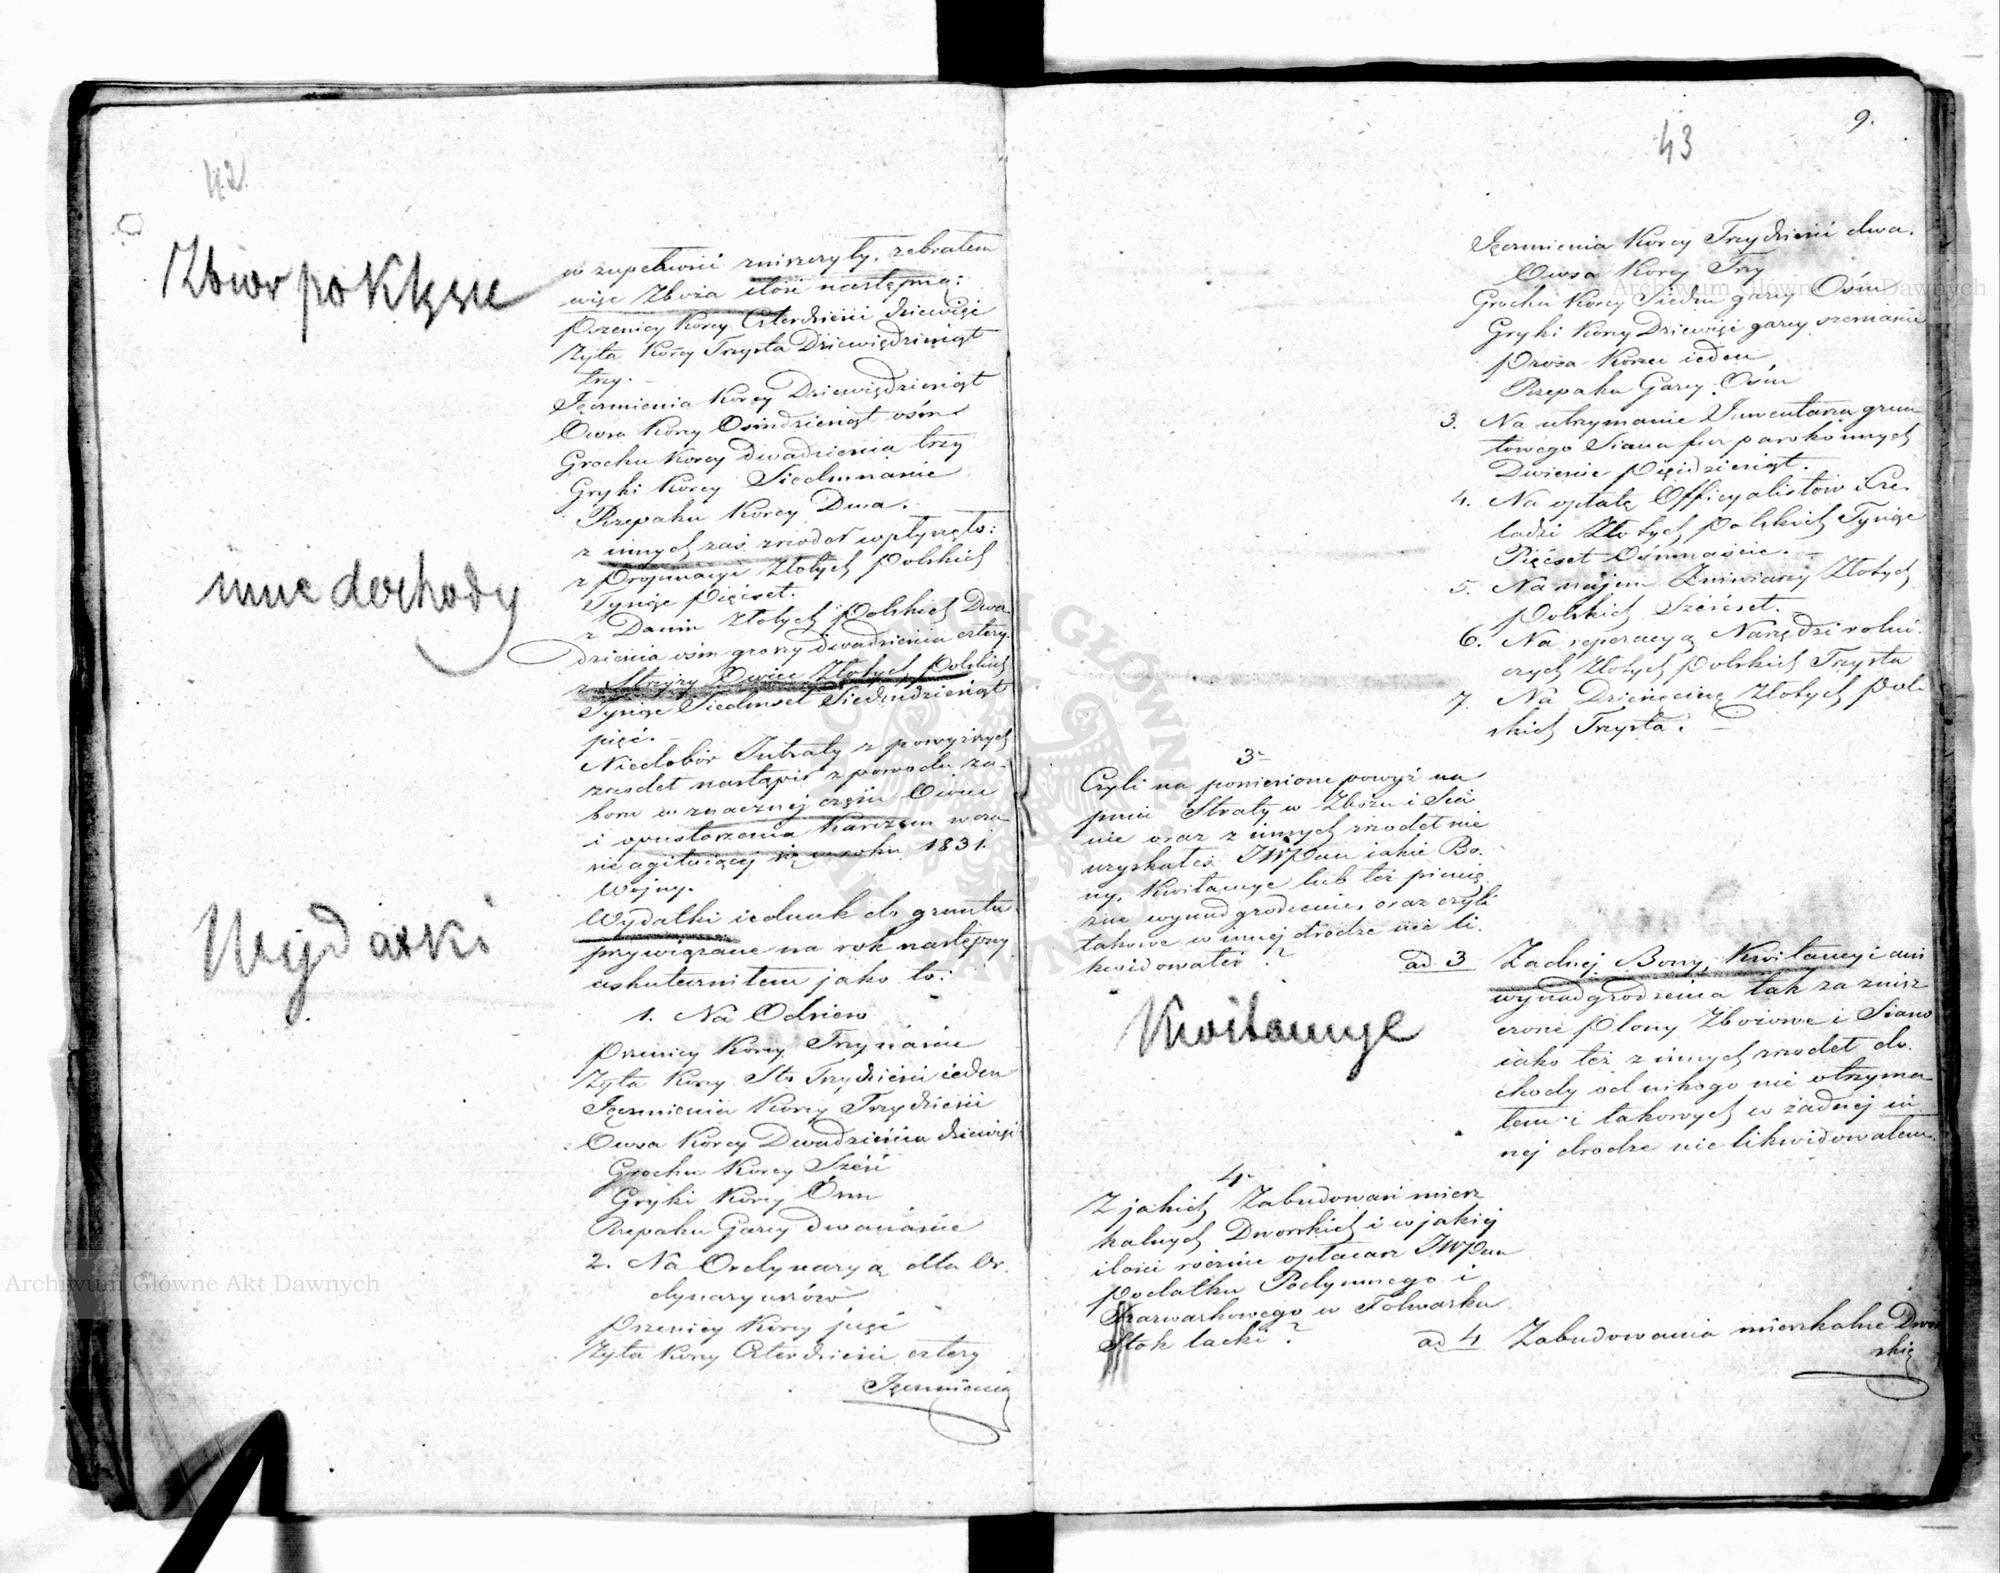 42
Zbior po Klęsce
w zupełności zniszczyły, zebrałem
więc Zboża ilość następną:
Pszenicy Korcy Czterdzieści dziewięć
Żyta Korcy Trzysta Dziewięćdziesiąt
trzy. —
Jęczmienia Korcy Dziewięćdziesiąt
Owsa Korcy Osmdziesiąt ośm
Grochu Korcy dwadzieścia trzy
Gryki Korcy Siedmnaście
Rzepaku Korcy Dwa.
inne dochody
z innych zaś zrodeł wpłynęło:
z Propinacyi Złotych Polskich
Tysiąc Pięćset.
z Danin Złotych Polskich Dwa
dzieścia ośm groszy dwadzieścia cztery.
z Strzyży Owiec Złotych Polskich
Tysiąc Siedmset Siedmdziesiąt
pięć. —
Niedobór Intraty z powyższych
zrodeł nastąpił z powodu za-
boru w znacznej części Owiec
i opustoszenia Karczem w cza-
sie agituiącej się w roku 1831
Wojny.
Wydatki
Wydatki iednak do gruntu
przywiązane na rok następny
uskuteczniłem jako to:
1. Na Odsiew
Pszenicy Korcy Trzynaście
Żyta Korcy Sto Trzydzieści ieden
Jęczmienia Korcy Trzydzieści
Owsa Korcy Dwadzieścia dziewięć
Grochu Korcy Sześć
Gryki Korcy Ósm
Rzepaku Garcy dwanaście
2. Na Ordynaryą dla Or-
dynaryuszów
Pszenicy Korcy pięć
Żyta Korcy Czterdzieści cztery
Jęczmienia
43
9.
Jęczmienia Korcy Trzydzieści dwa.
Owsa Korcy Trzy
Grochu Korcy Siedm garcy Ośm
Gryki Korcy Dziewięć garcy szesnaście
Prosa Korzec ieden
Rzepaku Garcy Ośm
3. Na utrzymanie Inwentarza grun-
towego Siana fur parokonnych
Dwieście Pięćdziesiąt.
4. Na opłatę Officyalistów i Cze-
ladzi Złotych Polskich Tysiąc
Pięćset Ośmnaście. —
5. Na najem Żniwiarzy Złotych
Polskich Sześćset.
6. Na reperacyą Narzędzi rolni-
czych Złotych Polskich Trzysta
7. Na Dziesięcinę Złotych Pol-
skich Trzysta. —
3
Czyli na poniesione powyż na
pniu Straty w Zbożu i Sia
nie oraz z innych zrodeł nie
uzyskałeś JWPan iakie Bo-
ny, Kwitancye lub też pienię
żne wynadgrodzenie, oraz czyli
takowe w innej drodze nie li-
kwidowałeś?
ad 3 Żadnej Bony, Kwitancyi ani
wynadgrodzenia tak za znisz
czone Plony Zbożowe i Siano
iako też z innych zrodeł do-
chody od nikogo nie otrzyma-
łem i takowych w żadnej in
nej drodze nie likwidowałem.
Kwitancye
4
Z jakich Zabudowań miesz
kalnych Dworskich i w jakiej
ilości rocznie opłacasz JWPan
Podatku Podymnego i
Szarwarkowego w Folwarku
Stok lacki?
ad 4 Zabudowania mieszkalne Dwor
skie
Archiwum Główne Akt Dawnych
Archiwum Główne Akt Dawnych